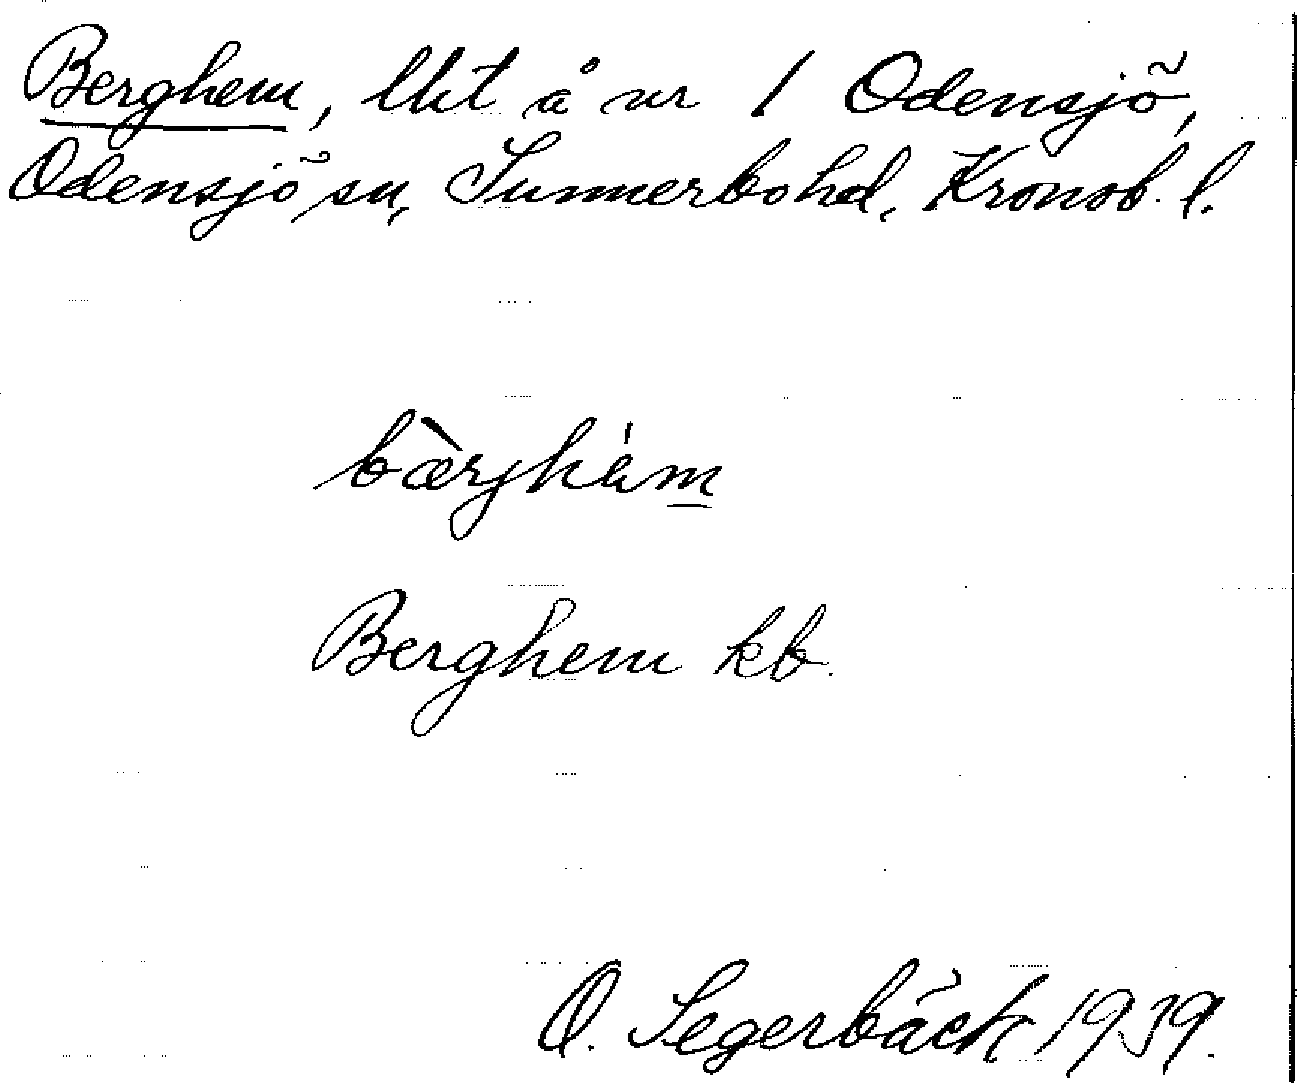 Berghem, lht å nr 1 Odensjö,
Odensjö sn, Sunnerbo hd, Kronob. l.
bæ̀rjhém
Berghem kb.
O. Segerbäck 1939.